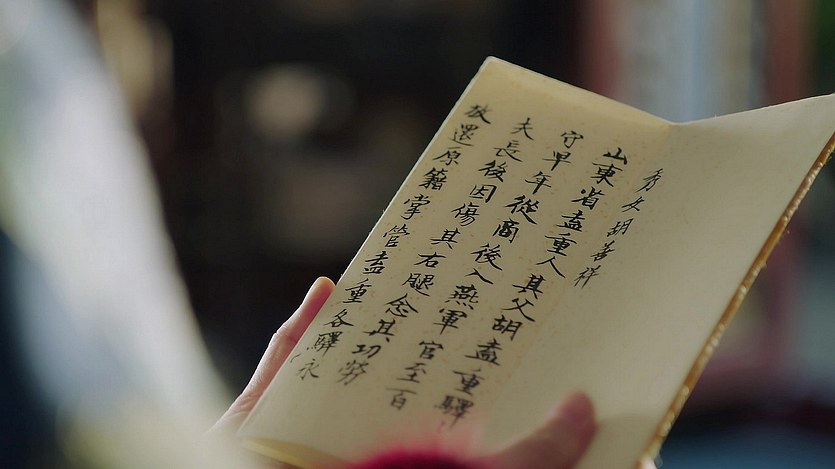 秀女胡善祥
山東省盍重人其父胡盍重驛
守早年從商後入燕軍官至百
夫長後因傷其右腿念其功勞
放還原籍掌管盍重各驛永